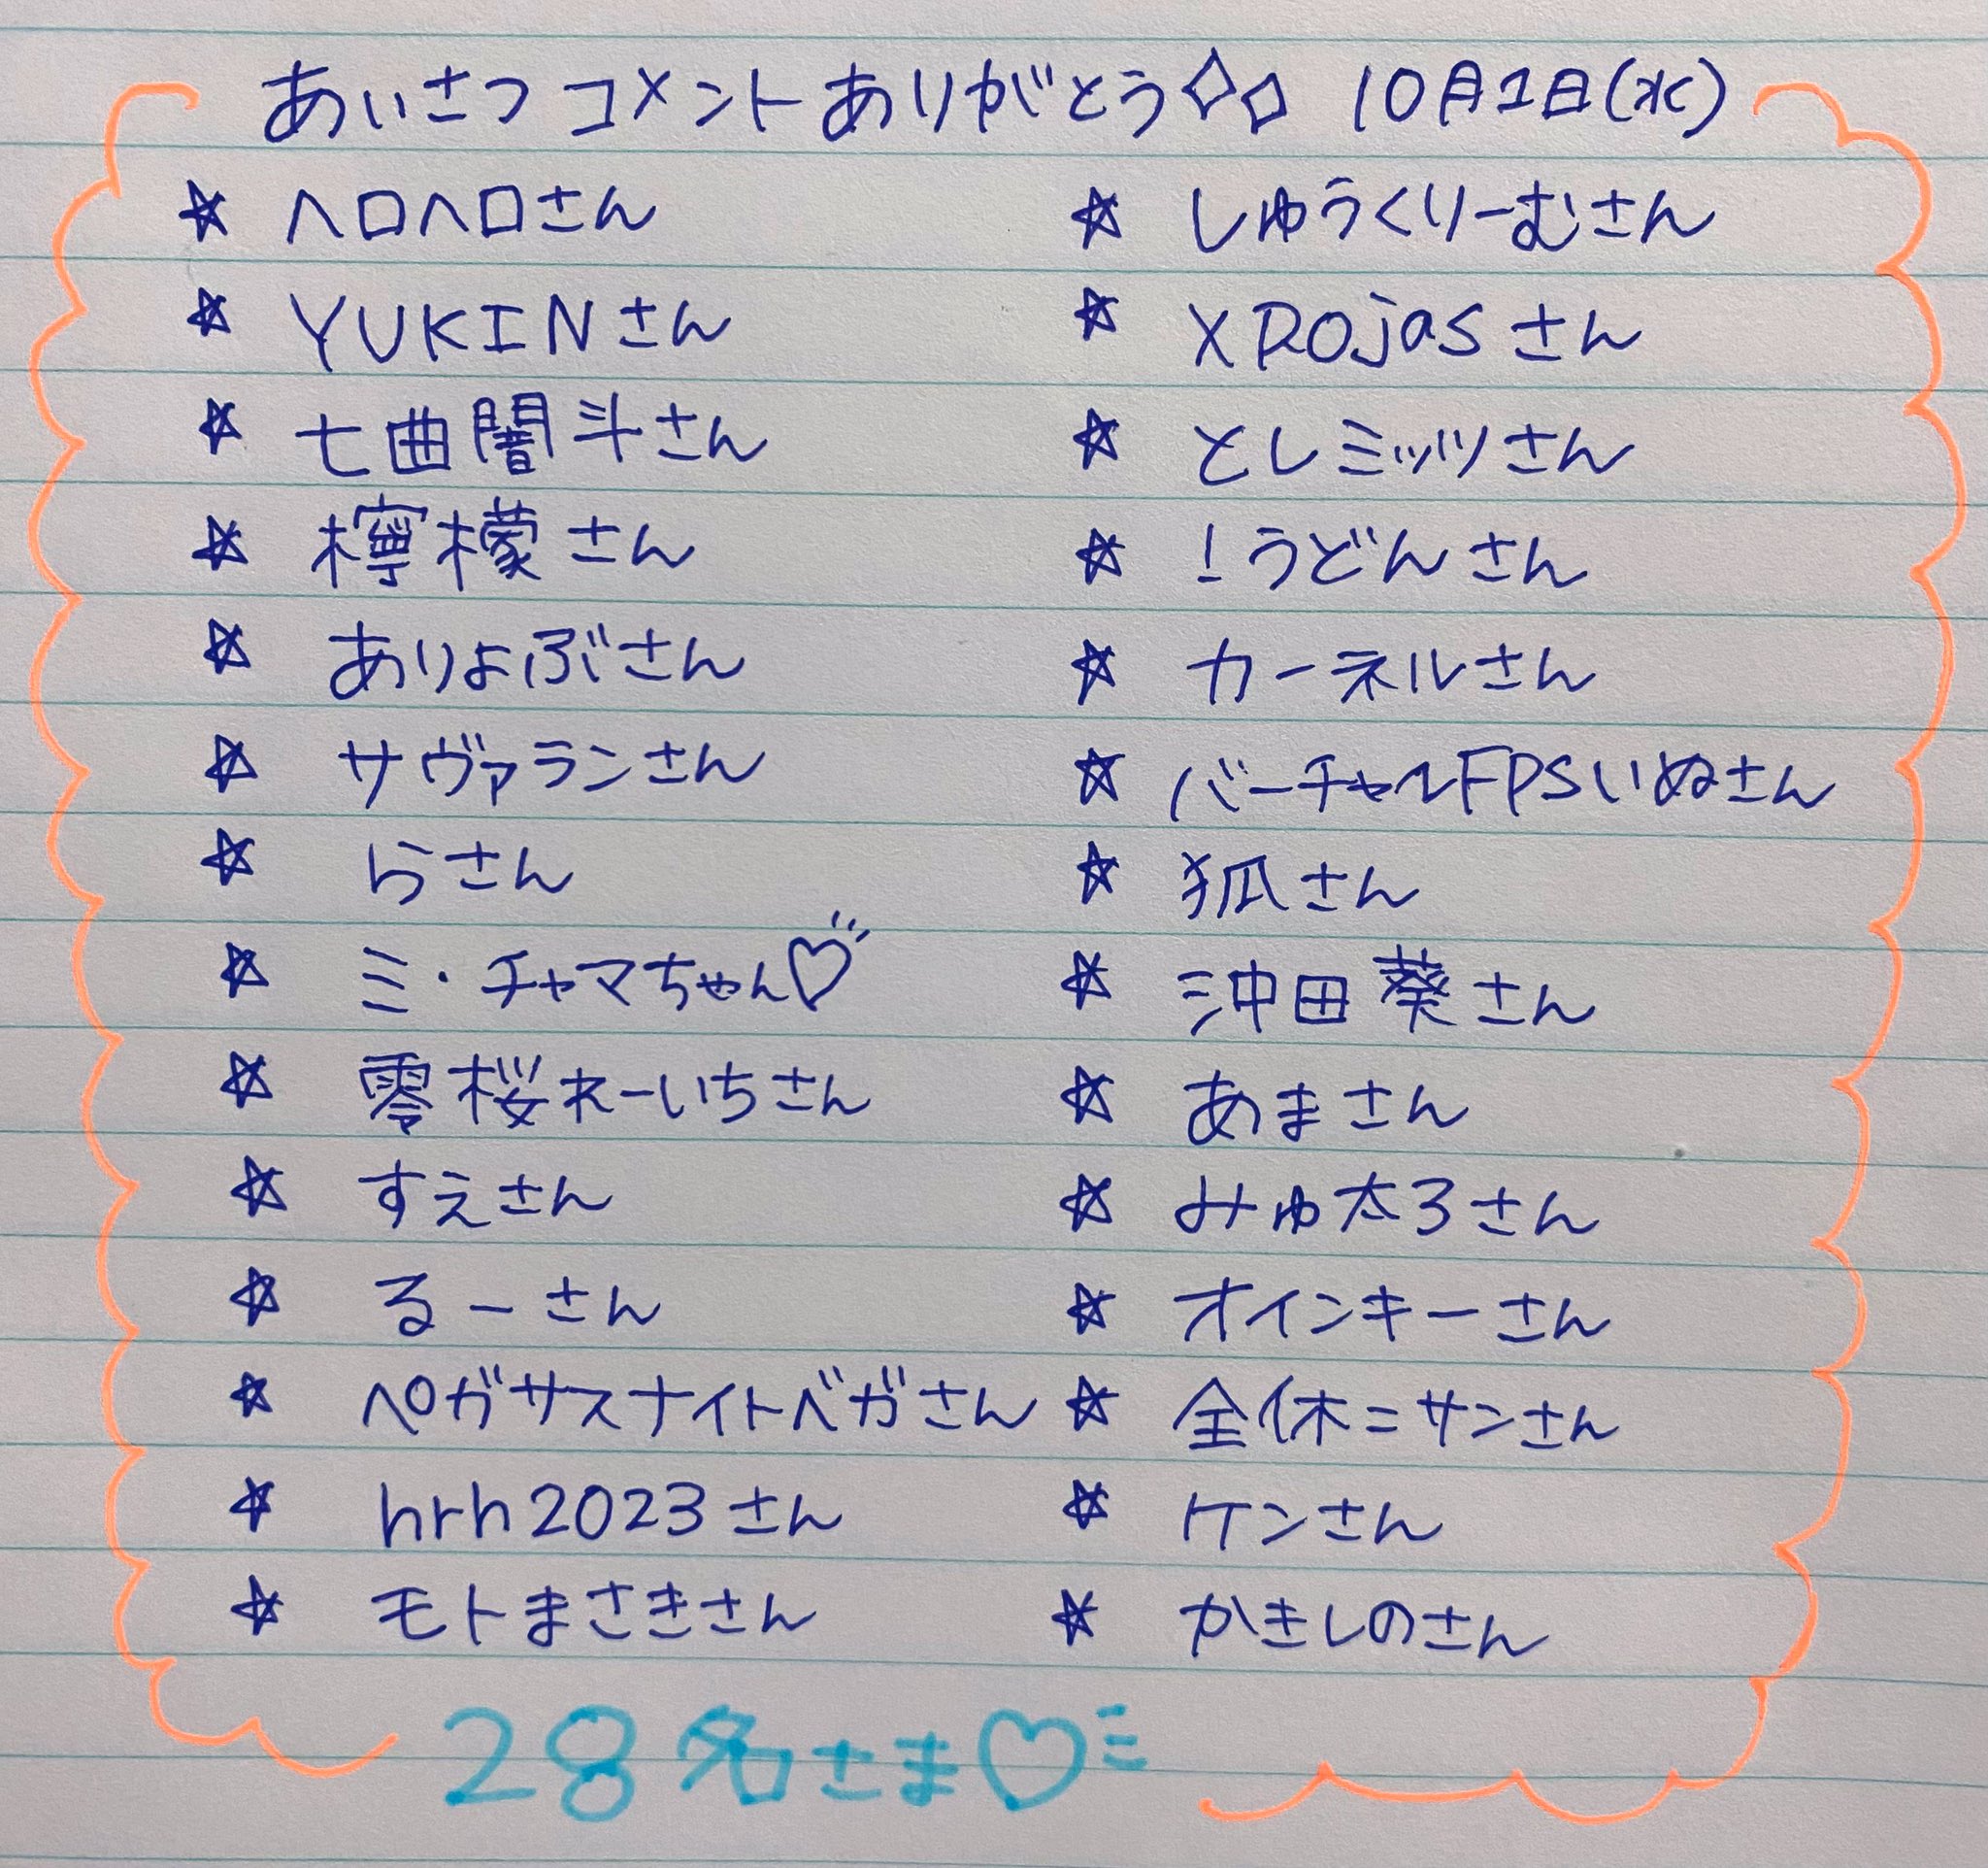 あいさつコメントありがとう 10月1日(水)
☆ ヘロヘロさん
☆ YUKINさん
☆ 七曲闇斗さん
☆ 檸檬さん
☆ ありょぶさん
☆ サヴァランさん
☆ らさん
☆ ミ・チャマちゃん♡
☆ 零桜れーいちさん
☆ すえさん
☆ るーさん
☆ ペガサスナイトベガさん
☆ hrh2023さん
☆ モトまさきさん
☆ しゅうくりーむさん
☆ XROjasさん
☆ としミッツさん
☆ !うどんさん
☆ カーネルさん
☆ バーチャルFPSいぬさん
☆ 狐さん
☆ 沖田葵さん
☆ あまさん
☆ みゅ太ろさん
☆ オインキーさん
☆ 全休=サンさん
☆ ケンさん
☆ かきしのさん
28名さま♡